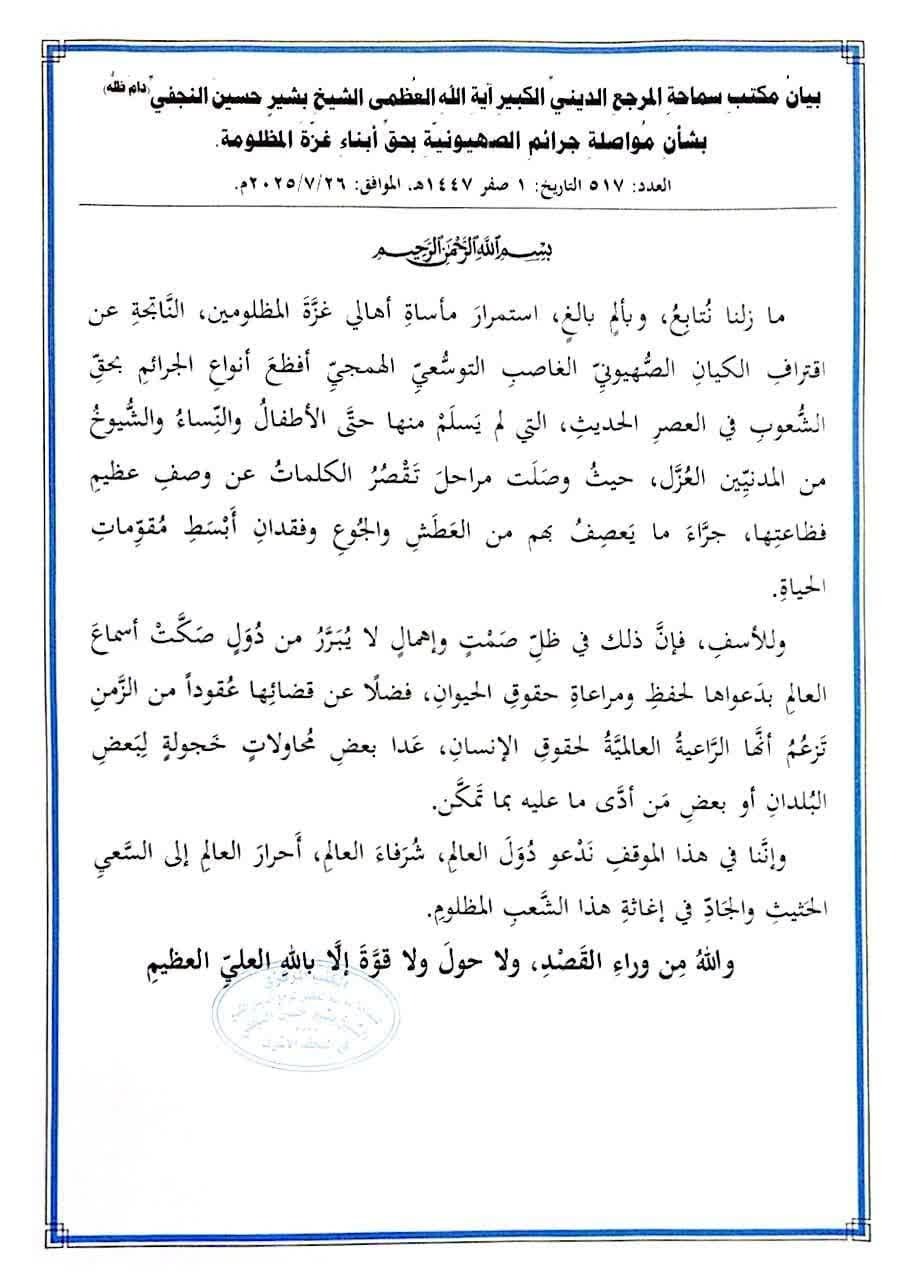 بيانُ مكتبِ سماحةِ المرجعِ الدينيِّ الكبيرِ آيةِ اللهِ العُظمى الشيخِ بشيرِ حسينٍ النجفيِّ (دام ظله)
بشأنِ مُواصلةِ جرائمِ الصهيونيّةِ بحقِّ أبناءِ غزّةَ المظلومة.
العدد: ٥١٧ التاريخ: ١ صفر ١٤٤٧هـ، الموافق: ٢٠٢٥/٧/٢٦م.
بِسْمِ اللَّهِ الرَّحْمَنِ الرَّحِيمِ
ما زلنا نُتابِعُ، وبألمٍ بالغٍ، استمرارَ مأساةِ أهالي غزَّةَ المظلومين، النَّاتجةِ عن
اقترافِ الكيانِ الصُّهيونيِّ الغاصبِ التوسُّعيِّ الهمجيِّ أفظعَ أنواعِ الجرائمِ بحقِّ
الشُّعوبِ في العصرِ الحديثِ، التي لم يَسلَمْ منها حتَّى الأطفالُ والنِّساءُ والشُّيوخُ
من المدنيِّين العُزَّل، حيثُ وصَلَت مراحلَ تَقْصُرُ الكلماتُ عن وصفِ عظيمِ
فظاعتِها، جرَّاءَ ما يَعصِفُ بهم من العَطَشِ والجُوعِ وفقدانِ أَبْسَطِ مُقوِّماتِ
الحياةِ.
وللأسفِ، فإنَّ ذلك في ظلِّ صَمْتٍ وإهمالٍ لا يُبَرَّرُ من دُوَلٍ صَكَّتْ أسماعَ
العالمِ بدَعواها لحفظِ ومراعاةِ حقوقِ الحيوانِ، فضلًا عن قضائِها عُقوداً من الزَّمنِ
تَزعُمُ أنَّها الرَّاعيةُ العالميَّةُ لحقوقِ الإنسانِ، عَدا بعضِ مُحاولاتٍ خَجولةٍ لِبَعضِ
البُلدانِ أو بعضِ مَن أدَّى ما عليه بما تمَكَّن.
وإنَّنا في هذا الموقفِ نَدْعو دُوَلَ العالمِ، شُرَفاءَ العالمِ، أَحرارَ العالمِ إلى السَّعيِ
الحَثيثِ والجَادِّ في إغاثةِ هذا الشَّعبِ المظلومِ.
واللهُ مِن وراءِ القَصْدِ، ولا حولَ ولا قوَّةَ إلَّا باللهِ العليِّ العظيمِ